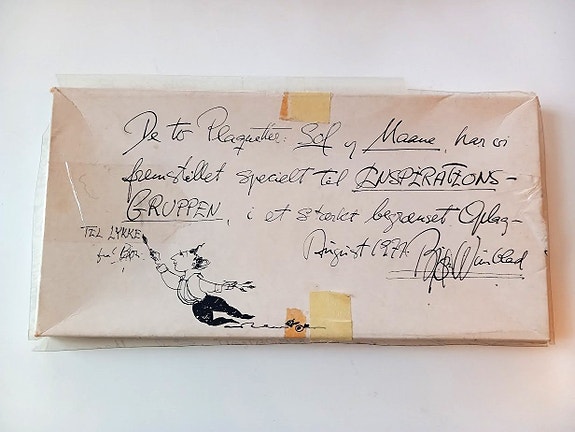 De to Plaquetter: Sol og Maane, har vi
fremstillet specielt til INSPIRATIONS-
GRUPPEN, i et stærkt begrænset Oplag-
TIL LYKKE
fra
August 1971. Bjørn Wiinblad